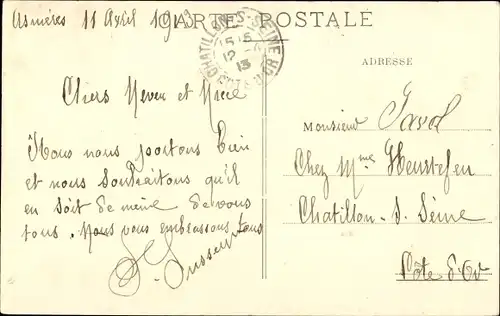 Asnières 11 Avril 1913
CARTE POSTALE
CHATILLON-S-SEINE
15 15
12 -4
13
CÔTE D'OR
ADRESSE
Chers Neveu et Nièce
Nous nous portons bien
et nous souhaitons qu'il
en soit de même de vous
tous. Nous vous embrassons tous
Monsieur
Chez Mme
Chatillon-s-Seine
Côte d'Or